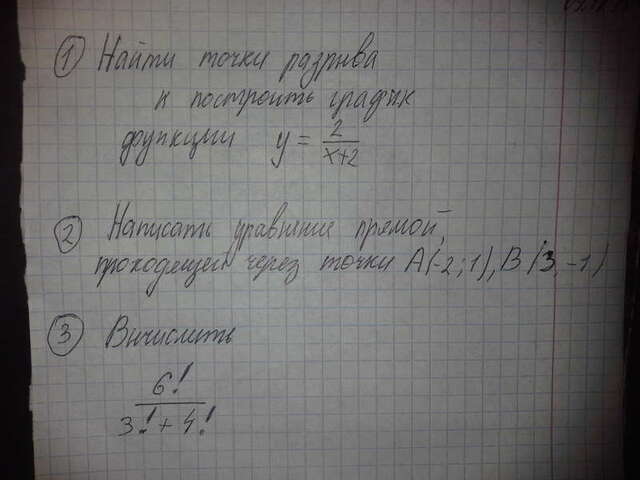 1 Найти точки разрыва
и построить график
функции y = 2/(x+2)
2 Написать уравнение прямой,
проходящей через точки A(-2; 1), B(3, -1)
3 Вычислить
6!/(3! + 4!)